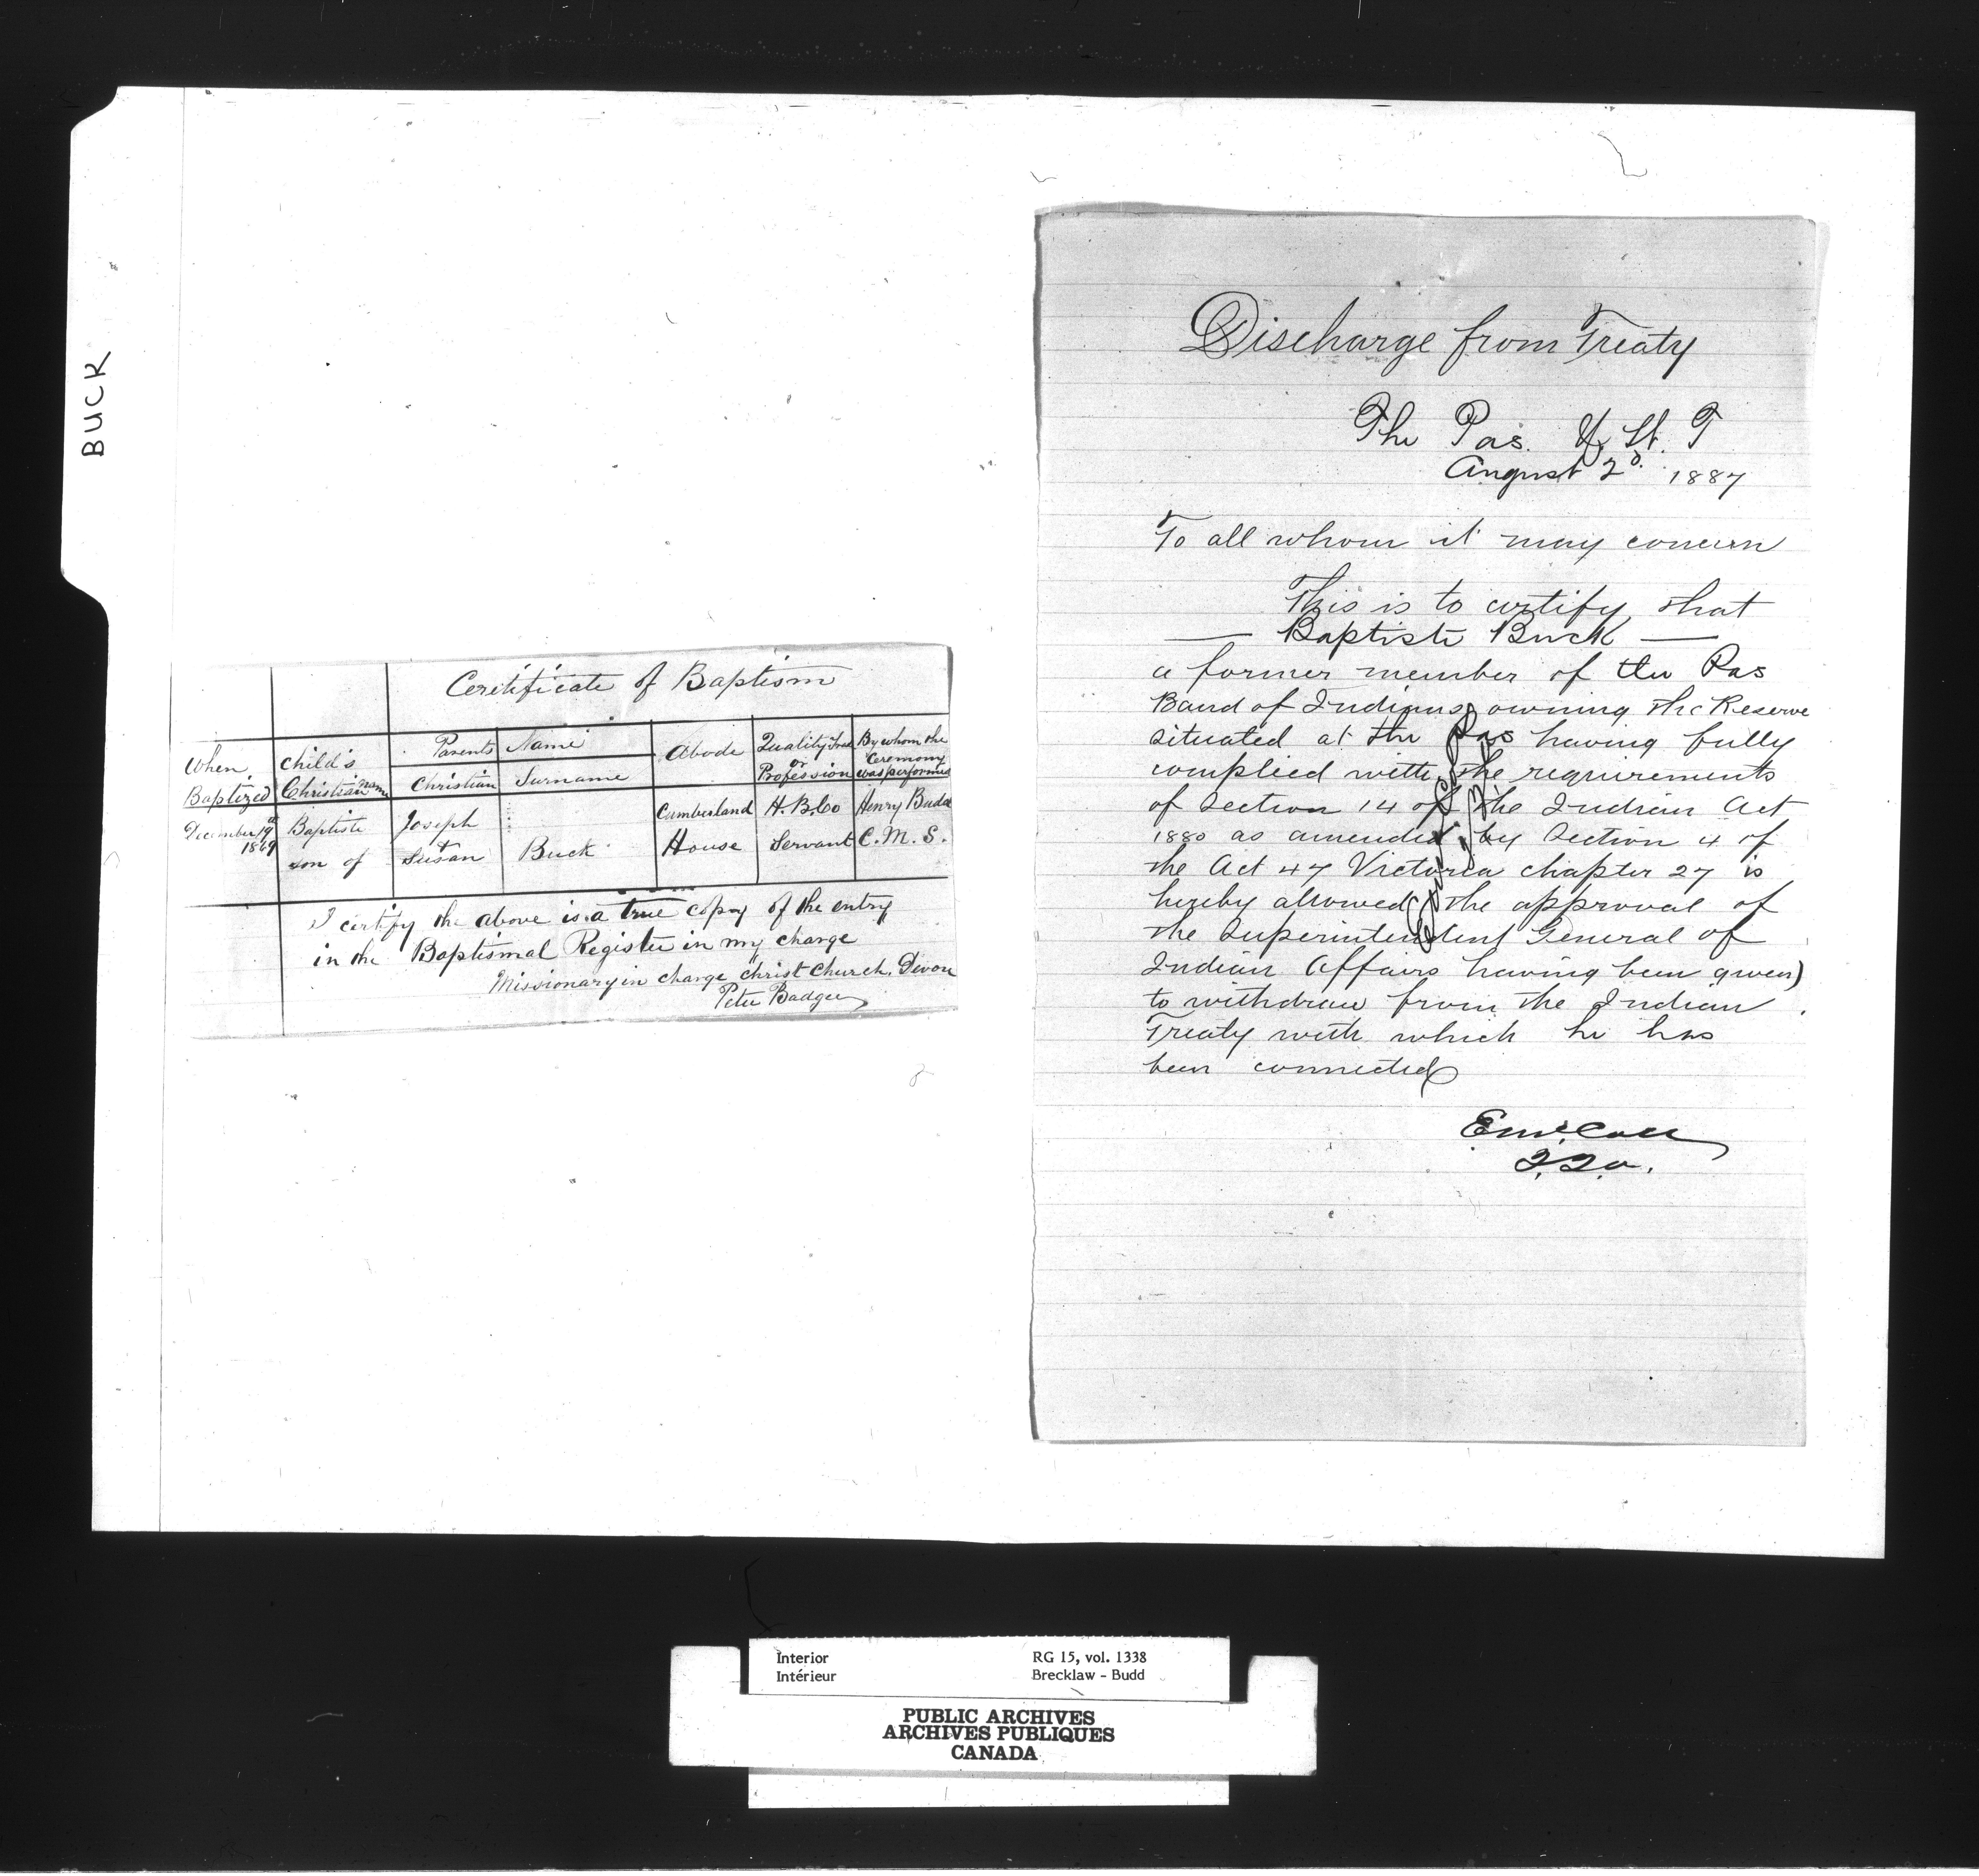 BUCK
Ceritificate of Baptism
When Baptized
Child's Christian name
Parents Name
Christian
Surname
Abode
Quality Trade or Profession
By whom the Ceremony was performed
December 19th 1869
Baptiste son of
Joseph
Susan
Buck
Cumberland House
H.B.Co Servant
Henry Budd C.M.S.
I certify the above is a true copy of the entry
in the Baptismal Register in my charge
Missionary in charge Christ Church. Devon
Peter Badger
Discharge from Treaty
The Pas. N. W. T
August 2d. 1887
To all whom it may concern
This is to certify that
— Baptiste Buck —
a former member of the Pas
Band of Indians owning the Reserve
situated at the Pas having fully
complied with the requirements
of Section 14 of the Indian Act
1880 as amended by Section 4 of
the Act 47 Victoria chapter 27 is
hereby allowed (the approval of
the Superintendent General of
Indian Affairs having been given)
to withdraw from the Indian
Treaty with which he has
been connected
E McColl
Interior
Intérieur
RG 15, vol. 1338
Brecklaw - Budd
PUBLIC ARCHIVES
ARCHIVES PUBLIQUES
CANADA